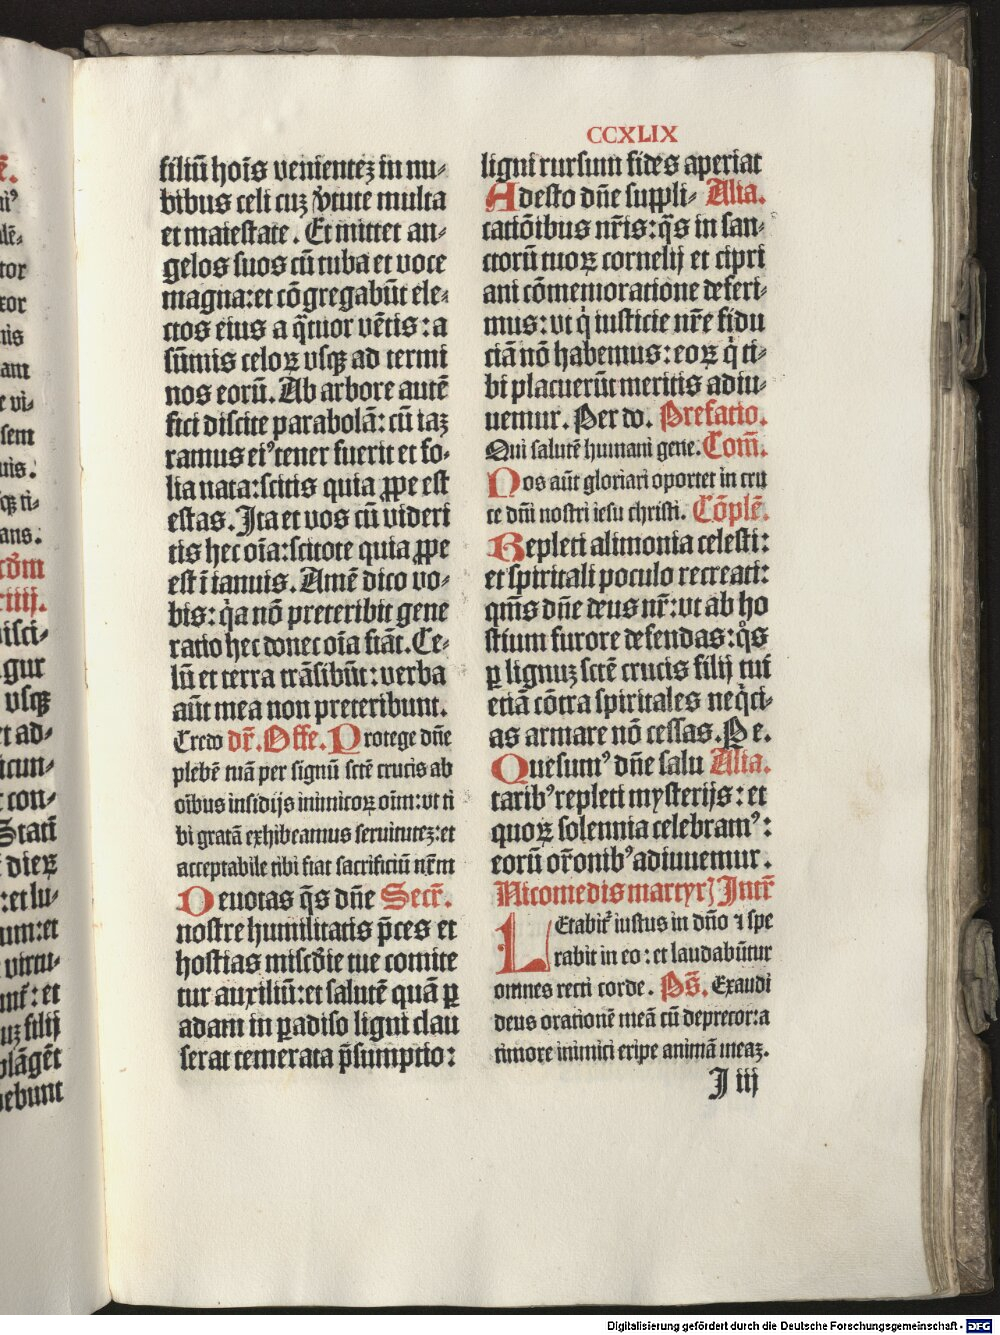 CCXLIX
filiū hoīs venientez in nu⸗
bibus celi cuz v̓tute multa
et maiestate. Et mittet an⸗
gelos suos cū tuba et voce
magna: et cōgregabūt ele⸗
ctos eius a q̄tuor vētis: a
sūmis celoꝝ vsqꝫ ad termi
nos eorū. Ab arbore autē
fici discite parabolā: cū iaz
ramus eiꝰ tener fuerit et fo⸗
lia nata: scitis quia ꝓpe est
estas. Ita et vos cū videri
tis hec oīa: scitote quia ꝓpe
est ī ianuis. Amē dico vo⸗
bis: q̇a nō preteribit gene
ratio hec donec oīa fiāt. Ce⸗
lū et terra trāsibūt: verba
aūt mea non preteribunt.
Credo dr̄. Offe. Protege dn̄e
plebē tuā per signū sctē crucis ab
oībus insidijs inimicoꝝ oīm: vt ti
bi gratā exhibeamus seruitutez: et
acceptabile tibi fiat sacrificiū nr̄m
Deuotas q̄s dn̄e Secr̄.
nostre humilitatis p̄ces et
hostias mis̄cdie tue comite
tur auxiliū: et salutē quā ꝑ
adam in ꝑadiso ligni clau
serat temerata p̄sumptio:
ligni rursum fides aperiat
Adesto dn̄e suppli⸗ Alia.
catiōibus nr̄is: q̄s in san⸗
ctorū tuoꝝ cornelij et cipri
ani cōmemoratione deferi⸗
mus: vt q̇ iusticie nr̄e fidu
ciā nō habemus: eoꝝ q̇ ti⸗
bi placuerūt meritis adiu⸗
uemur. Per do. Prefatio.
Qui salutē humani gene. Com̄.
Nos aūt gloriari oportet in cru
ce dn̄i nostri iesu christi. Cōplē.
Repleti alimonia celesti:
et spiritali poculo recreati:
qm̄s dn̄e deus nr̄: vt ab ho
stium furore defendas: q̊s
ꝑ lignuz sctē crucis filij tui
etiā cōtra spiritales neq̇ci⸗
as armare nō cessas. Pe.
Quesumꝰ dn̄e salu Alia.
taribꝰ repleti mysterijs: et
quoꝝ solennia celebramꝰ:
eorū or̄onibꝰ adiuuemur.
Nicomedis martyrꝭ Intr̄
LEtabit᷑ iustus in dn̄o ⁊ spe
rabit in eo: et laudabūtur
omnes recti corde. Ps̄. Exaudi
deus orationē meā cū deprecor: a
timore inimici eripe animā meaz.
I iij
Digitalisierung gefördert durch die Deutsche Forschungsgemeinschaft - DFG